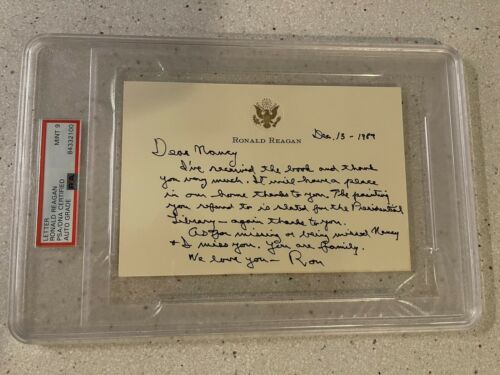 LETTER
RONALD REAGAN
PSA/DNA CERTIFIED
AUTO GRADE
MINT 9
84332100
PSA
RONALD REAGAN
Dec. 13 - 1989
Dear Nancy
I've received the book and thank
you very much. It will have a place
in our home thanks to you. The painting
you refered to is slated for the Presidential
Library — again thanks to you.
As for missing or being missed Nancy
& I miss you. You are family.
We love you — Ron